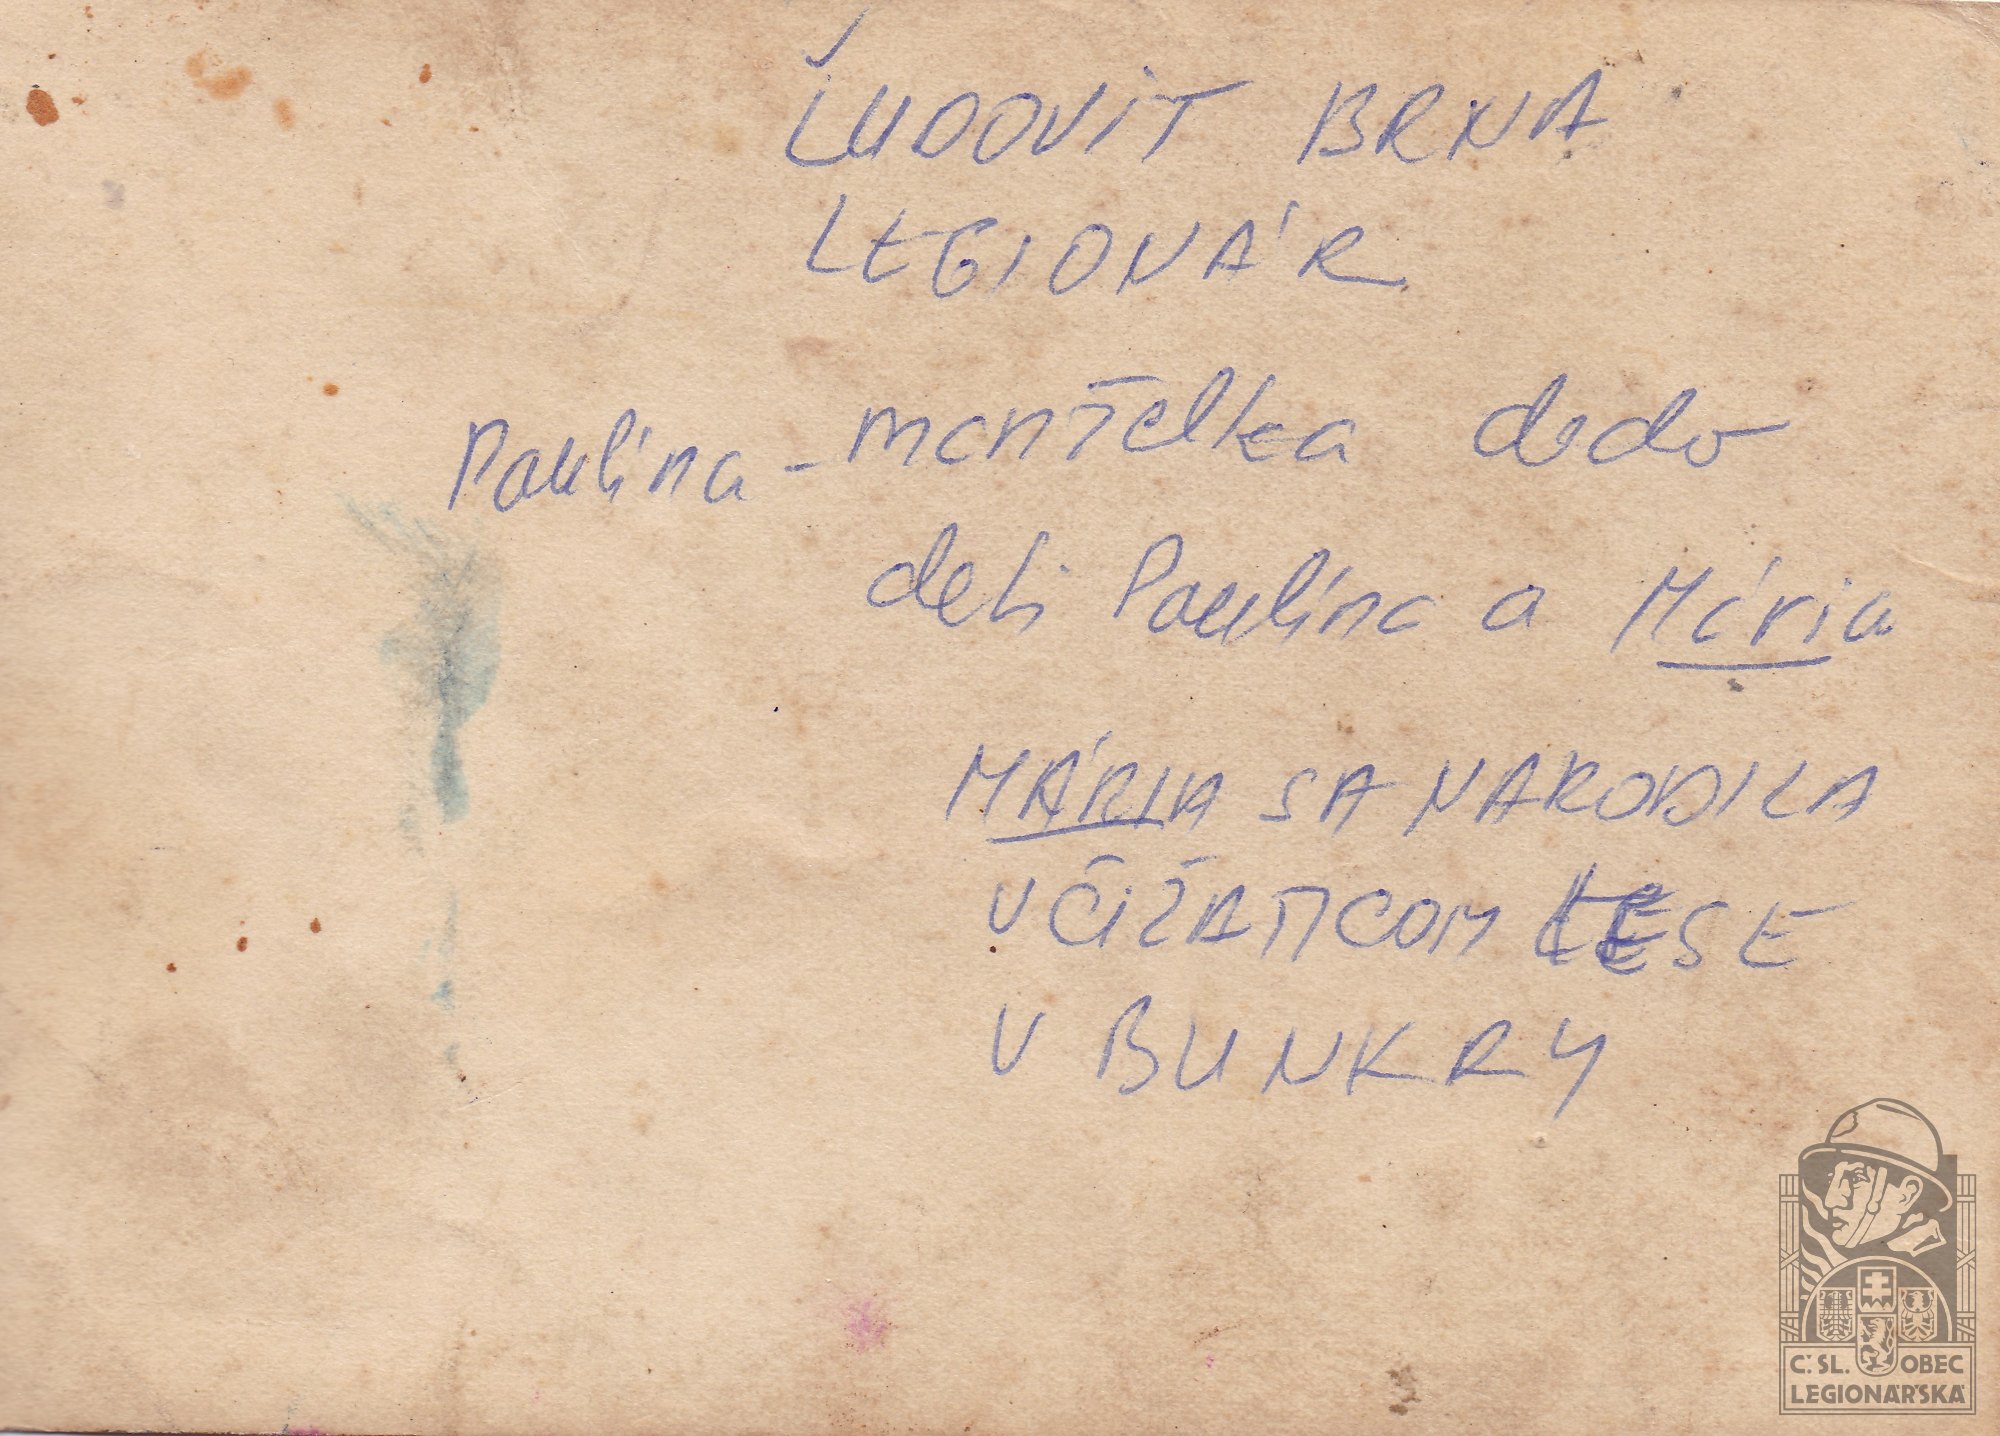 ĽUDOVIT BRNA
LEGIONÁR
Paulína - manželka dedo
deti Paulína a Mária
MÁRIA SA NARODILA
V ČIŽATICOM LESE
V BUNKRY
Č. SL. OBEC
LEGIONÁŘSKÁ